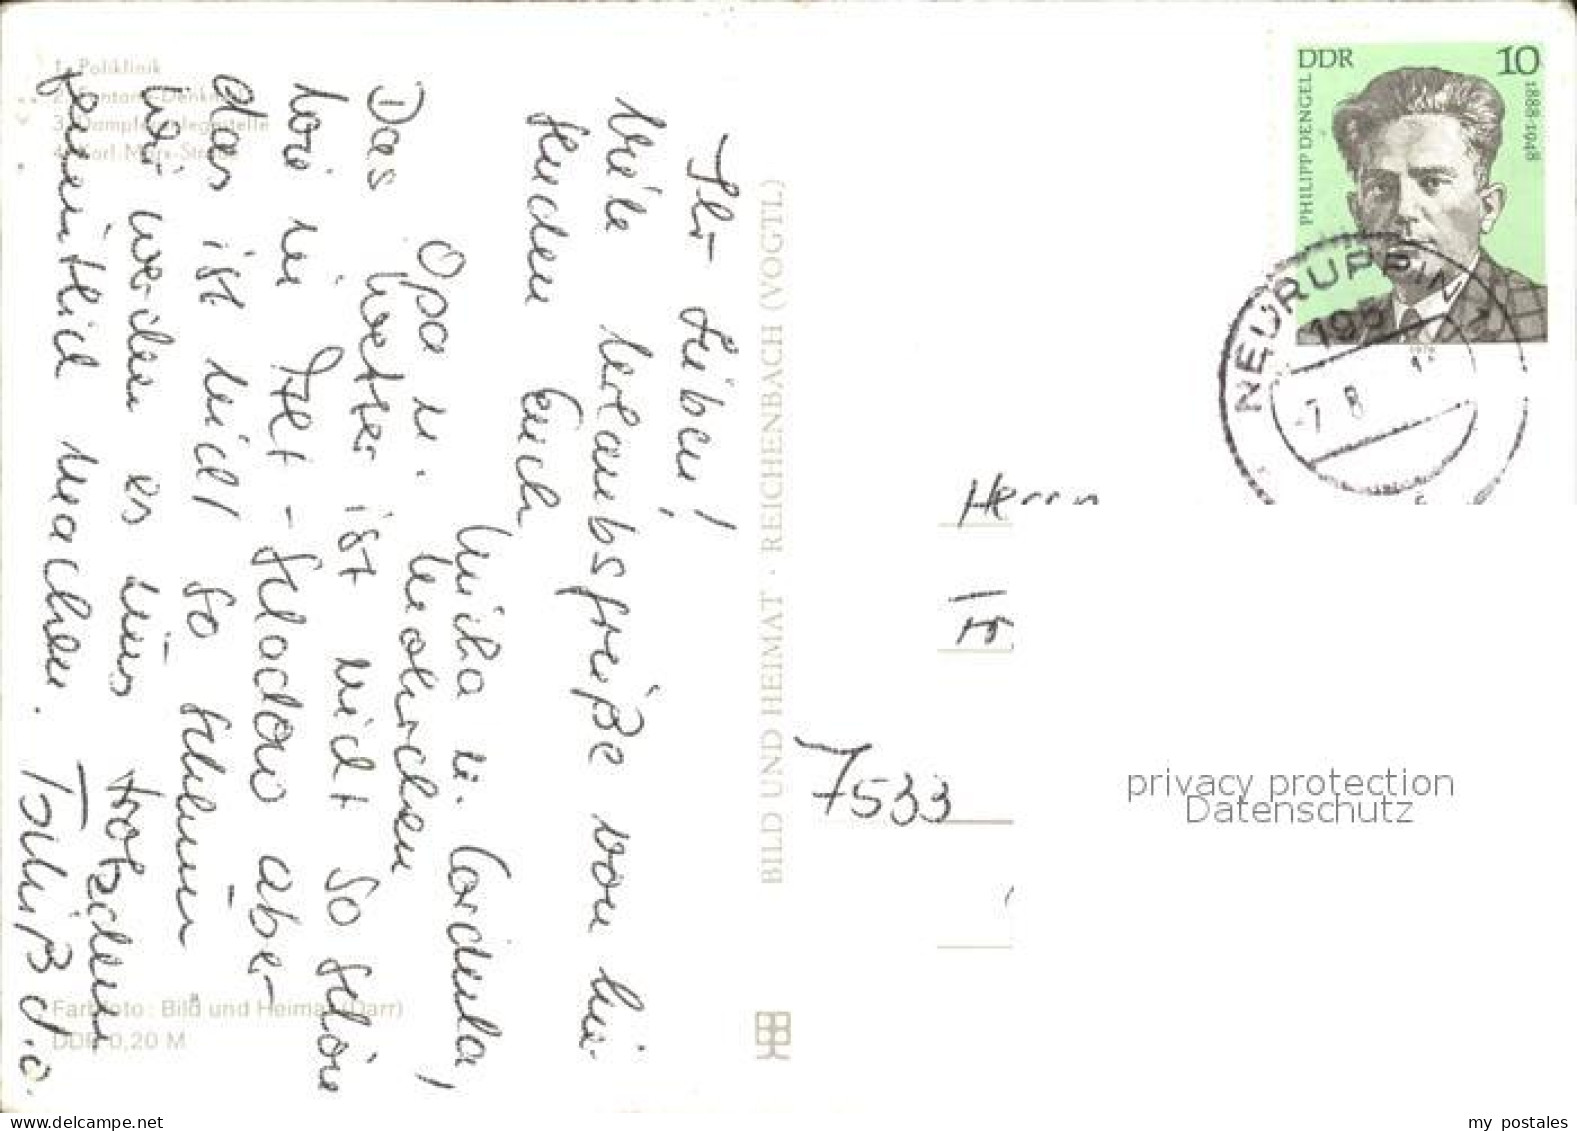 1. Poliklinik
2. Fontane-Denkmal
3. Dampferanlegestelle
4. Karl-Marx-Straße
Ihr Lieben!
Viele Urlaubsgrüße von hier
senden Euch
Micha u. Cordula,
Opa u.
Das Wetter ist nicht so schön
wie in
aber
das ist nicht so schlimm
wir werden es uns trotzdem
gemütlich machen. Tschüß
Farbfoto: Bild und Heimat (Darr)
DDR 0,20 M
BILD UND HEIMAT · REICHENBACH (VOGTL)
DDR 10
PHILIPP DENGEL
1888-1948
1978
NEURUPPIN 1
195
-7.8
Herrn
7533
privacy protection
Datenschutz
www.delcampe.net
my_postales